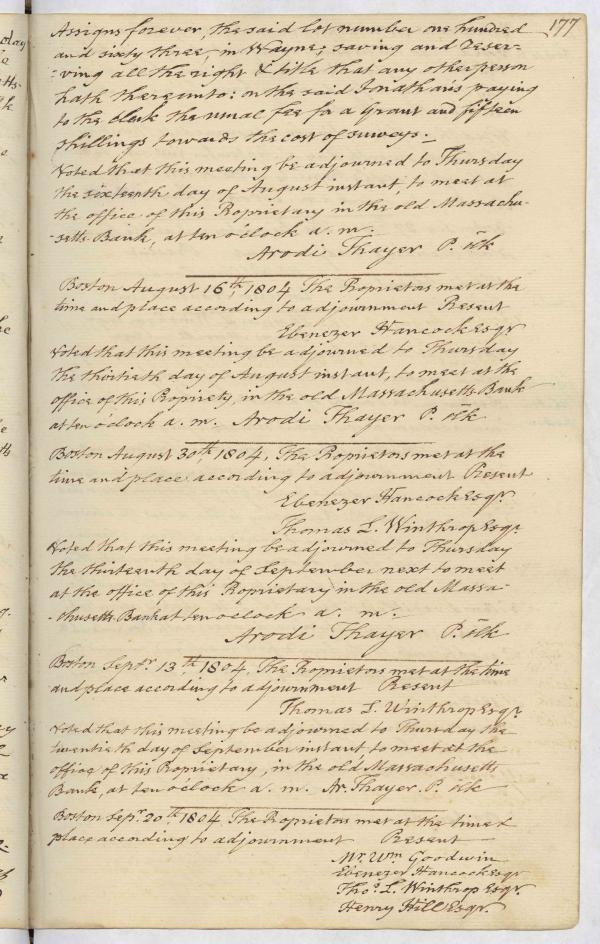 177
Assigns forever, the said lot number one hundred
and sixty three, in Wayne; saving and reser-
-ving all the right & title that any other person
hath thereunto: on the said Jonathan's paying
to the clerk the usual fee for a Grant and fifteen
shillings towards the cost of surveys.
Voted that this meeting be adjourned to Thursday
the sixteenth day of August instant, to meet at
the office of this Propriety in the old Massachu-
-setts Bank, at ten o'clock a. m.
Arodi Thayer P. Clk
Boston August 16th, 1804 The Proprietors met at the
time and place according to adjournment Present
Ebenezer Hancock Esqr
Voted that this meeting be adjourned to Thursday
the thirtieth day of August instant, to meet at the
office of this Propriety, in the old Massachusetts Bank
at ten o'clock a. m. Arodi Thayer P. Clk
Boston August 30th, 1804, The Proprietors met at the
time and place according to adjournment Present
Ebenezer Hancock Esqr.
Thomas L. Winthrop Esqr.
Voted that this meeting be adjourned to Thursday
the thirteenth day of September next to meet
at the office of this Proprietary in the old Massa-
-chusetts Bank at ten o clock a. m.
Arodi Thayer P. Clk
Boston Septr. 13th, 1804, The Proprietors met at the time
and place according to adjournment Present
Thomas L. Winthrop Esqr.
Voted that this meeting be adjourned to Thursday the
twentieth day of September instant to meet at the
office of this Proprietary, in the old Massachusetts
Bank, at ten o clock a. m. Ar. Thayer P. Clk
Boston Sepr. 20th 1804 The Proprietors met at the time &
place according to adjournment Present
Mr. Wm. Goodwin
Ebenezer Hancock Esqr
Thos. L. Winthrop Esqr.
Henry Hill Esqr.